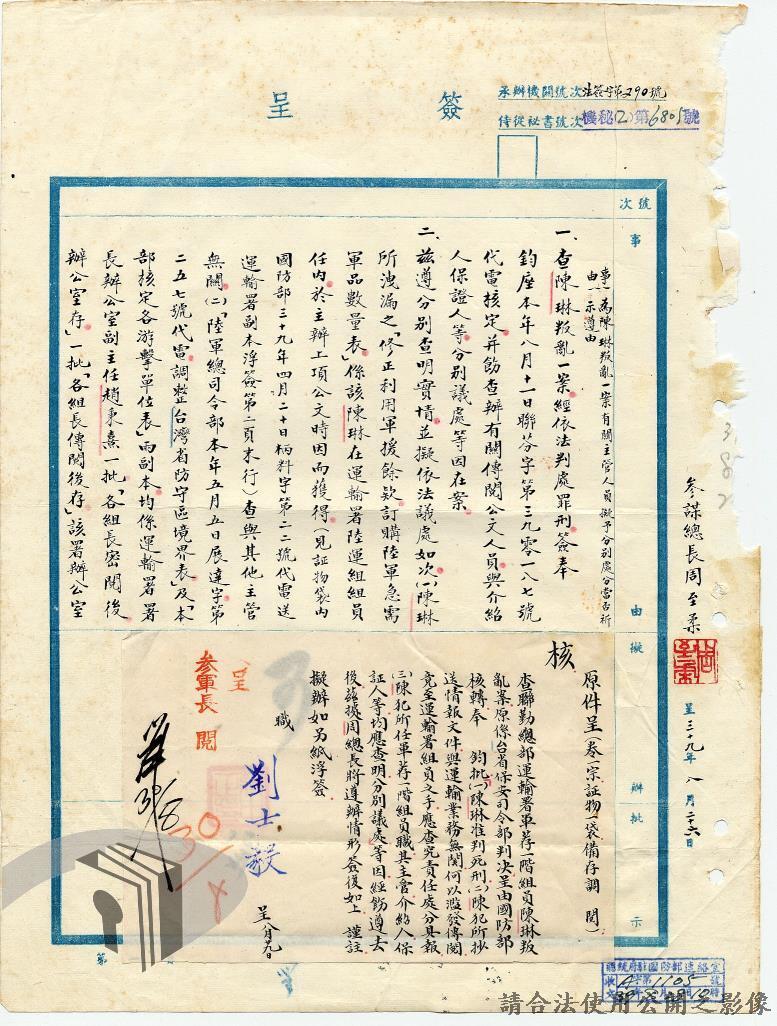 簽呈
承辦機關號次 法簽字第290號
侍從祕書號次 機秘(2)第6805號
號次
事由
擬辦
批示
參謀總長周至柔
呈三十九年八月二十六日
事由：為陳琳叛亂一案有關主管人員擬予分別處分當否祈示遵由
一、查陳琳叛亂一案經依法判處罪刑簽奉
鈞座本年八月十一日聯芬字第三九零一八七號
代電核定并飭查辦有關傳閱公文人員與介紹
人保證人等分別議處等因在案
二、茲遵分別查明實情並擬依法議處如次(一)陳琳
所洩漏之「修正利用軍援餘款訂購陸軍急需
軍品數量表」係該陳琳在運輸署陸運組組員
任內於主辦上項公文時因而獲得(見証物袋內
國防部三十九年四月二十日柄料字第二二號代電送
運輸署副本浮簽第二頁末行)查與其他主管
無關(二)「陸軍總司令部本年五月五日展達字第
二五七號代電調整台灣省防守區境界表」及「本
部核定各游擊單位表」兩副本均係運輸署署
長辦公室副主任趙秉熹一批「各組長密閱後
辦公室存」一批「各組長傳閱後存」該署辦公室
原件呈(卷一宗証物一袋備存調閱)
核
查聯勤總部運輸署軍荐一階組員陳琳叛
亂案原係台省保安司令部判決呈由國防部
核轉奉 鈞批(一)陳琳准判死刑(二)陳犯所抄
送情報文件與運輸業務無関何以濫發傳閱
竟至運輸署組員之手應查究責任處分具報
(三)陳犯所任軍荐一階組員職其主管介紹人保
証人等均應查明分別議處等因經飭遵去
後茲據周總長將遵辦情形簽復如上 謹註
擬辦如另紙浮簽
職
劉士毅
呈八月廿九日
呈
參軍長 閱
30/8
第
總統府駐國防部連絡室
1105
請合法使用公開之影像